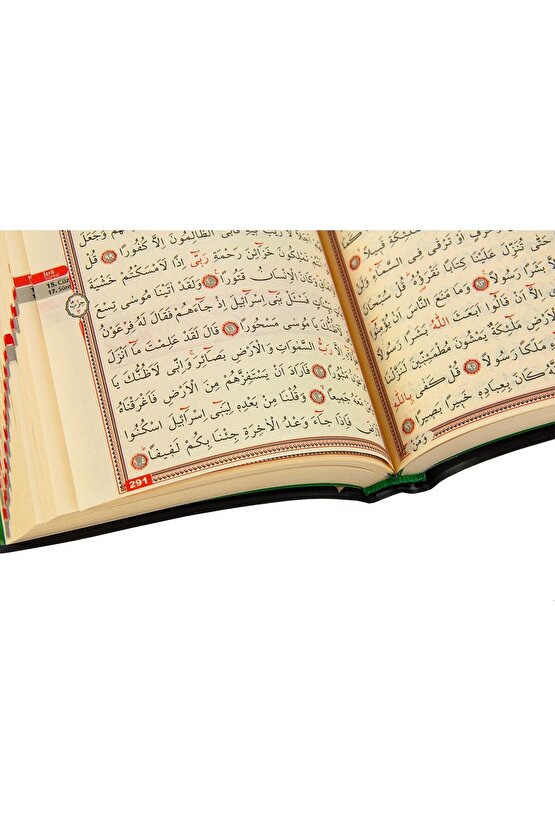 قَبٖيلًا
اَوْ تَرْقٰى فِي السَّمَٓاءِ
حَتّٰى تُنَزِّلَ عَلَيْنَا كِتَابًا نَقْرَؤُ۬هُ قُلْ
بَشَرًا رَسُولًا ﴿٩٣﴾ وَمَا مَنَعَ النَّاسَ اَنْ
اِلَّٓا اَنْ قَالُٓوا اَبَعَثَ اللّٰهُ بَشَرًا رَسُولًا
مَلٰٓئِكَةٌ يَمْشُونَ مُطْمَئِنّٖينَ لَنَزَّلْنَا
مَلَكًا رَسُولًا ﴿٩٥﴾ قُلْ كَفٰى بِاللّٰهِ
كَانَ بِعِبَادِهٖ خَبٖيرًا بَصٖيرًا ﴿٩٦﴾
وَمَنْ
فَاَبَى الظَّالِمُونَ اِلَّا كُفُورًا ﴿٩٩﴾ قُلْ
تَمْلِكُونَ خَزَٓائِنَ رَحْمَةِ رَبّٖٓي اِذًا لَاَمْسَكْتُمْ خَشْيَةَ
وَكَانَ الْاِنْسَانُ قَتُورًا ﴿١٠٠﴾ وَلَقَدْ اٰتَيْنَا مُوسٰى تِسْعَ
فَسْـَٔلْ بَنٖٓي اِسْرَٓائٖلَ اِذْ جَٓاءَهُمْ فَقَالَ لَهُ فِرْعَوْنُ
يَا مُوسٰى مَسْحُورًا ﴿١٠١﴾ قَالَ لَقَدْ عَلِمْتَ مَٓا اَنْزَلَ
رَبُّ السَّمٰوَاتِ وَالْاَرْضِ بَصَٓائِرَ وَاِنّٖي لَاَظُنُّكَ يَا
مَثْبُورًا ﴿١٠٢﴾ فَاَرَادَ اَنْ يَسْتَفِزَّهُمْ مِنَ الْاَرْضِ فَاَغْرَقْنَاهُ
جَمٖيعًا ﴿١٠٣﴾ وَقُلْنَا مِنْ بَعْدِهٖ لِبَنٖٓي اِسْرَٓائٖلَ اسْكُنُوا
فَاِذَا جَٓاءَ وَعْدُ الْاٰخِرَةِ جِئْنَا بِكُمْ لَفٖيفًا ﴿١٠٤﴾
291
15. Cüz
17. Sûre